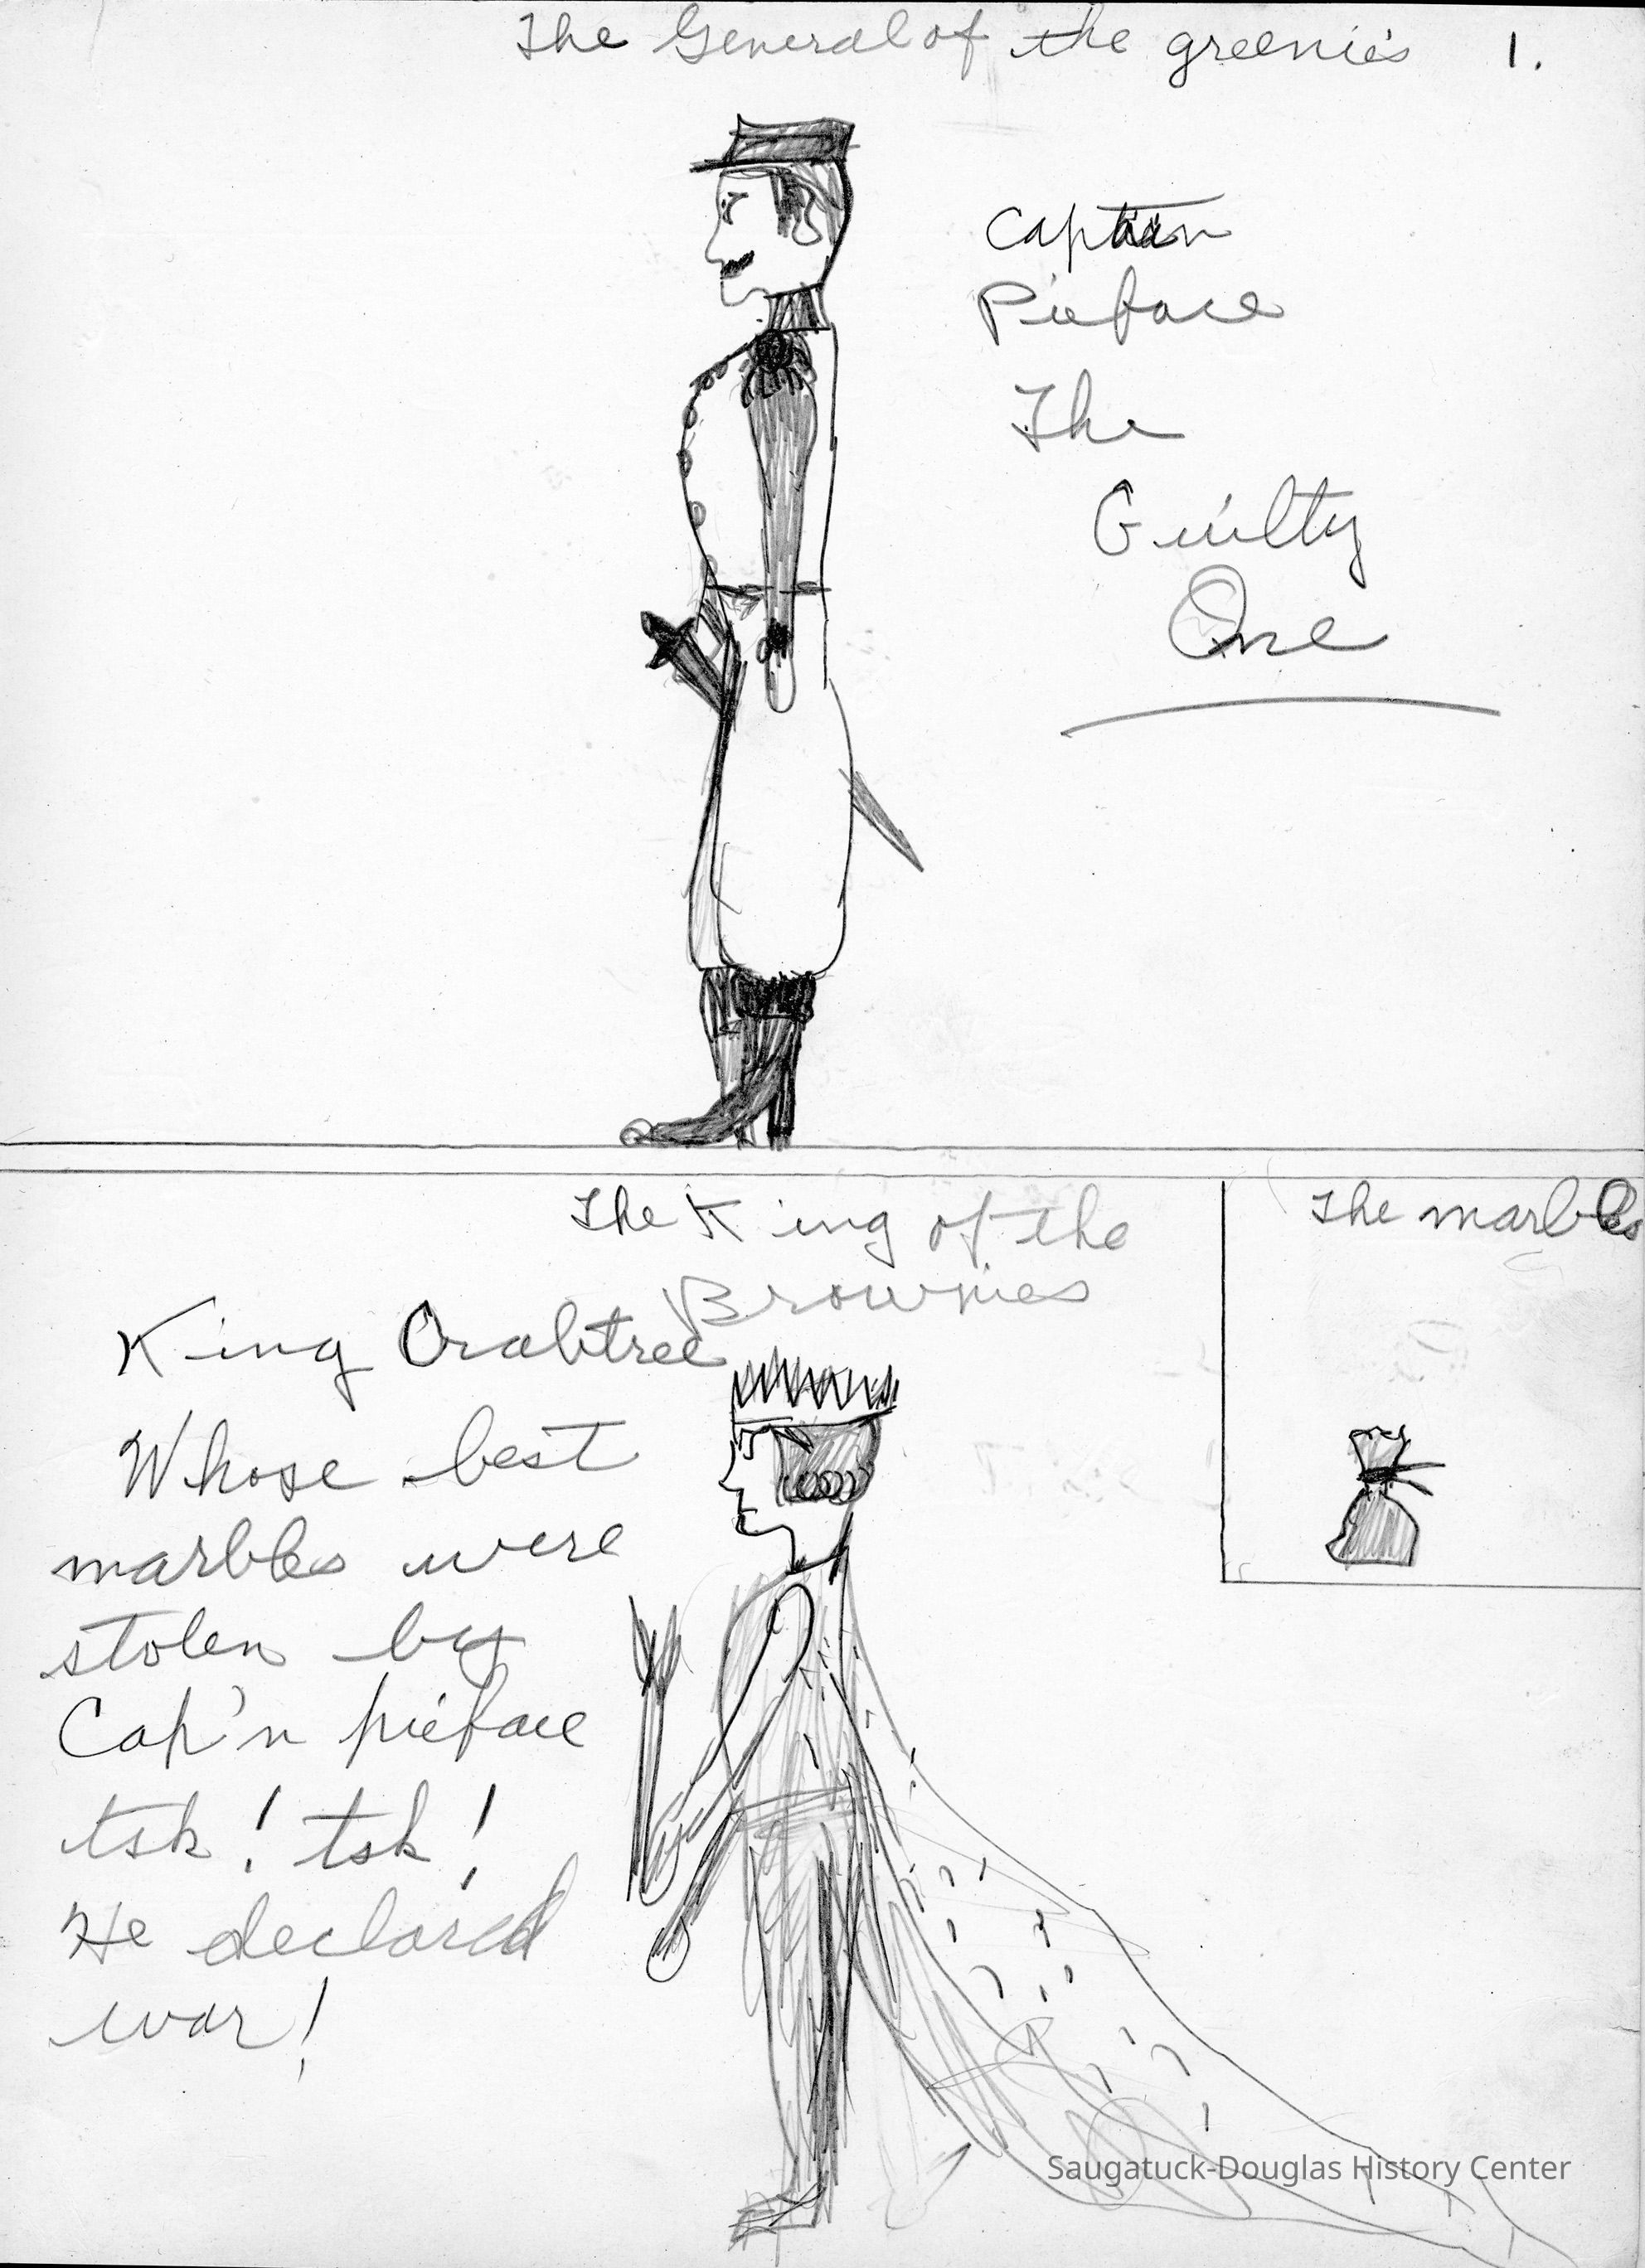 The General of the greenies 1.
Captain
Pieface
The
Guilty
One
The King of the
Brownies
The marbles
King Crabtree
Whose best
marbles were
stolen by
Cap'n pieface
tsk! tsk!
He declared
war!
Saugatuck-Douglas History Center